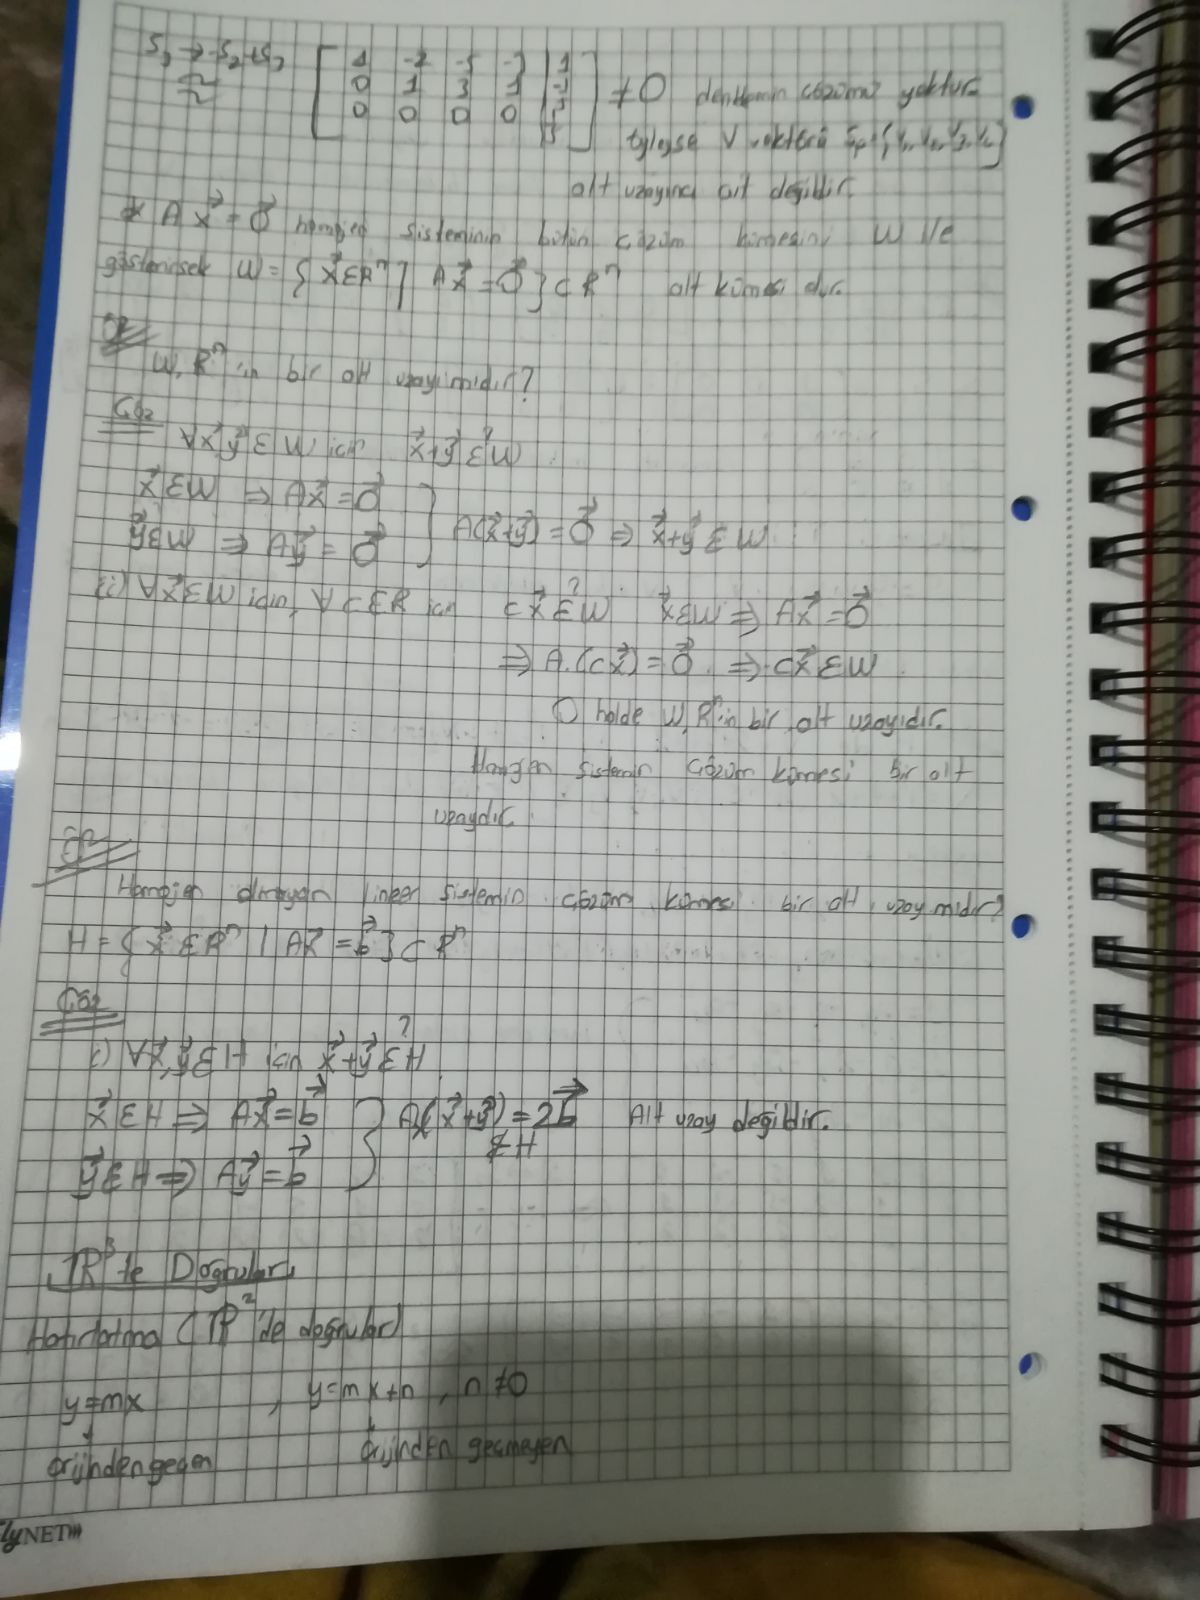 S₃ → -S₂+S₃ [ 1 -2 -5 -3 | 1
0 1 3 1 |
0 0 0 0 | ] ≠ 0 denklemin çözümü yoktur.
öyleyse V vektörü Sp{V₁, V₂, V₃, V₄}
alt uzayına ait değildir.
* Ax⃗ = 0⃗ homojen sisteminin bütün çözüm kümesini W ile
gösterirsek W = { x⃗ ∈ Rⁿ | Ax⃗ = 0⃗ } ⊂ Rⁿ alt kümesi dır.
ÖR
W, Rⁿ in bir alt uzayı mıdır?
Çöz
∀x⃗,y⃗ ∈ W için x⃗+y⃗ ∈? W
x⃗ ∈ W ⇒ Ax⃗ = 0⃗
y⃗ ∈ W ⇒ Ay⃗ = 0⃗ } A(x⃗+y⃗) = 0⃗ ⇒ x⃗+y⃗ ∈ W
ii) ∀x⃗ ∈ W için, ∀c ∈ R için cx⃗ ∈? W x⃗ ∈ W ⇒ Ax⃗ = 0⃗
⇒ A.(cx⃗) = 0⃗ ⇒ cx⃗ ∈ W
O halde W, Rⁿ in bir alt uzayıdır.
Homojen sistemin çözüm kümesi bir alt
uzaydır.
ÖR
Homojen olmayan lineer sistemin çözüm kümesi bir alt uzay mıdır?
H = { x⃗ ∈ Rⁿ | Ax⃗ = b⃗ } ⊂ Rⁿ
Çöz
i) ∀x⃗,y⃗ ∈ H için x⃗+y⃗ ∈? H
x⃗ ∈ H ⇒ Ax⃗ = b⃗
y⃗ ∈ H ⇒ Ay⃗ = b⃗ } A(x⃗+y⃗) = 2b⃗ Alt uzay değildir.
∉ H
IR³ te Doğrular
Hatırlatma (IR² 'de doğrular)
y=mx , y=mx+n , n≠0
↓ ↓
Orijinden geçen Orijinden geçmeyen
lyNET